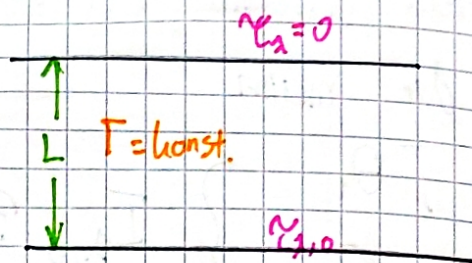 τ_λ = 0
L T = konst.
τ_λ,0